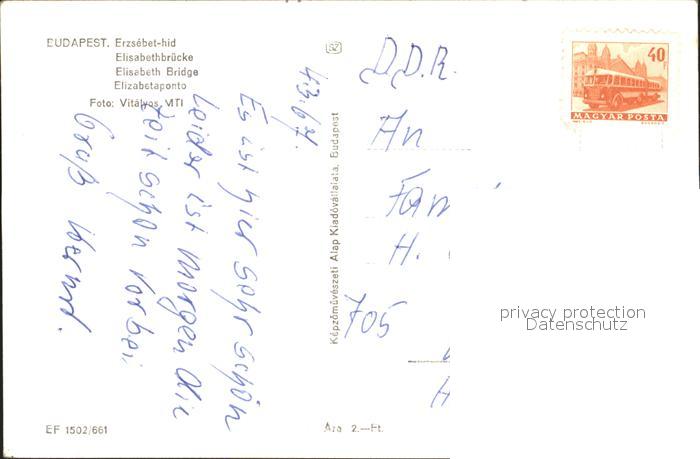 BUDAPEST. Erzsébet-hid
Elisabethbrücke
Elisabeth Bridge
Elizabetaponto
Foto: Vitályos, MTI
4.3.67.
Es ist hier sehr schön
leider ist morgen die
Zeit schon vorbei
Gruß Bernd.
EF 1502/661
Képzőművészeti Alap Kiadóvállalata, Budapest
Ára 2.—Ft.
D.D.R.
An
Fam
H.
705
H
40f
MAGYAR POSTA
privacy protection
Datenschutz